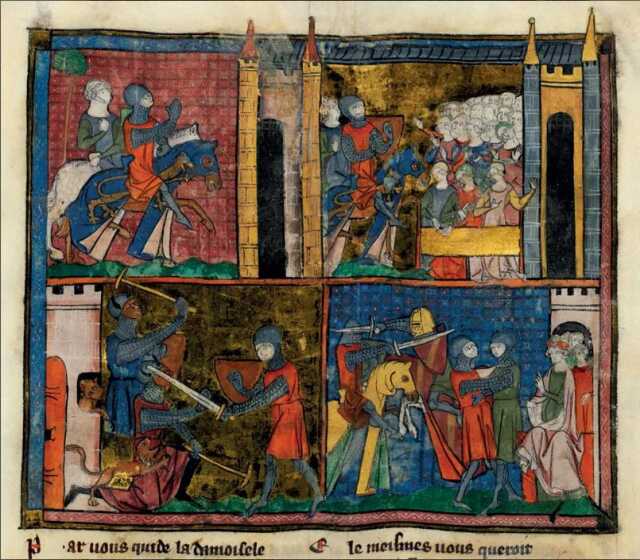 Par uous quide la dimoisele
E le meismes uous queroit